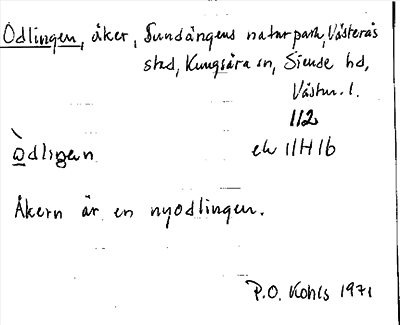 Odlingen, åker, Sundängens naturpark, Västerås
stad, Kungsåra sn, Siende hd,
Västm. l.
112
òdlingen
ek 11H1b
Åkern är en nyodlingen.
P.O. Kohls 1971